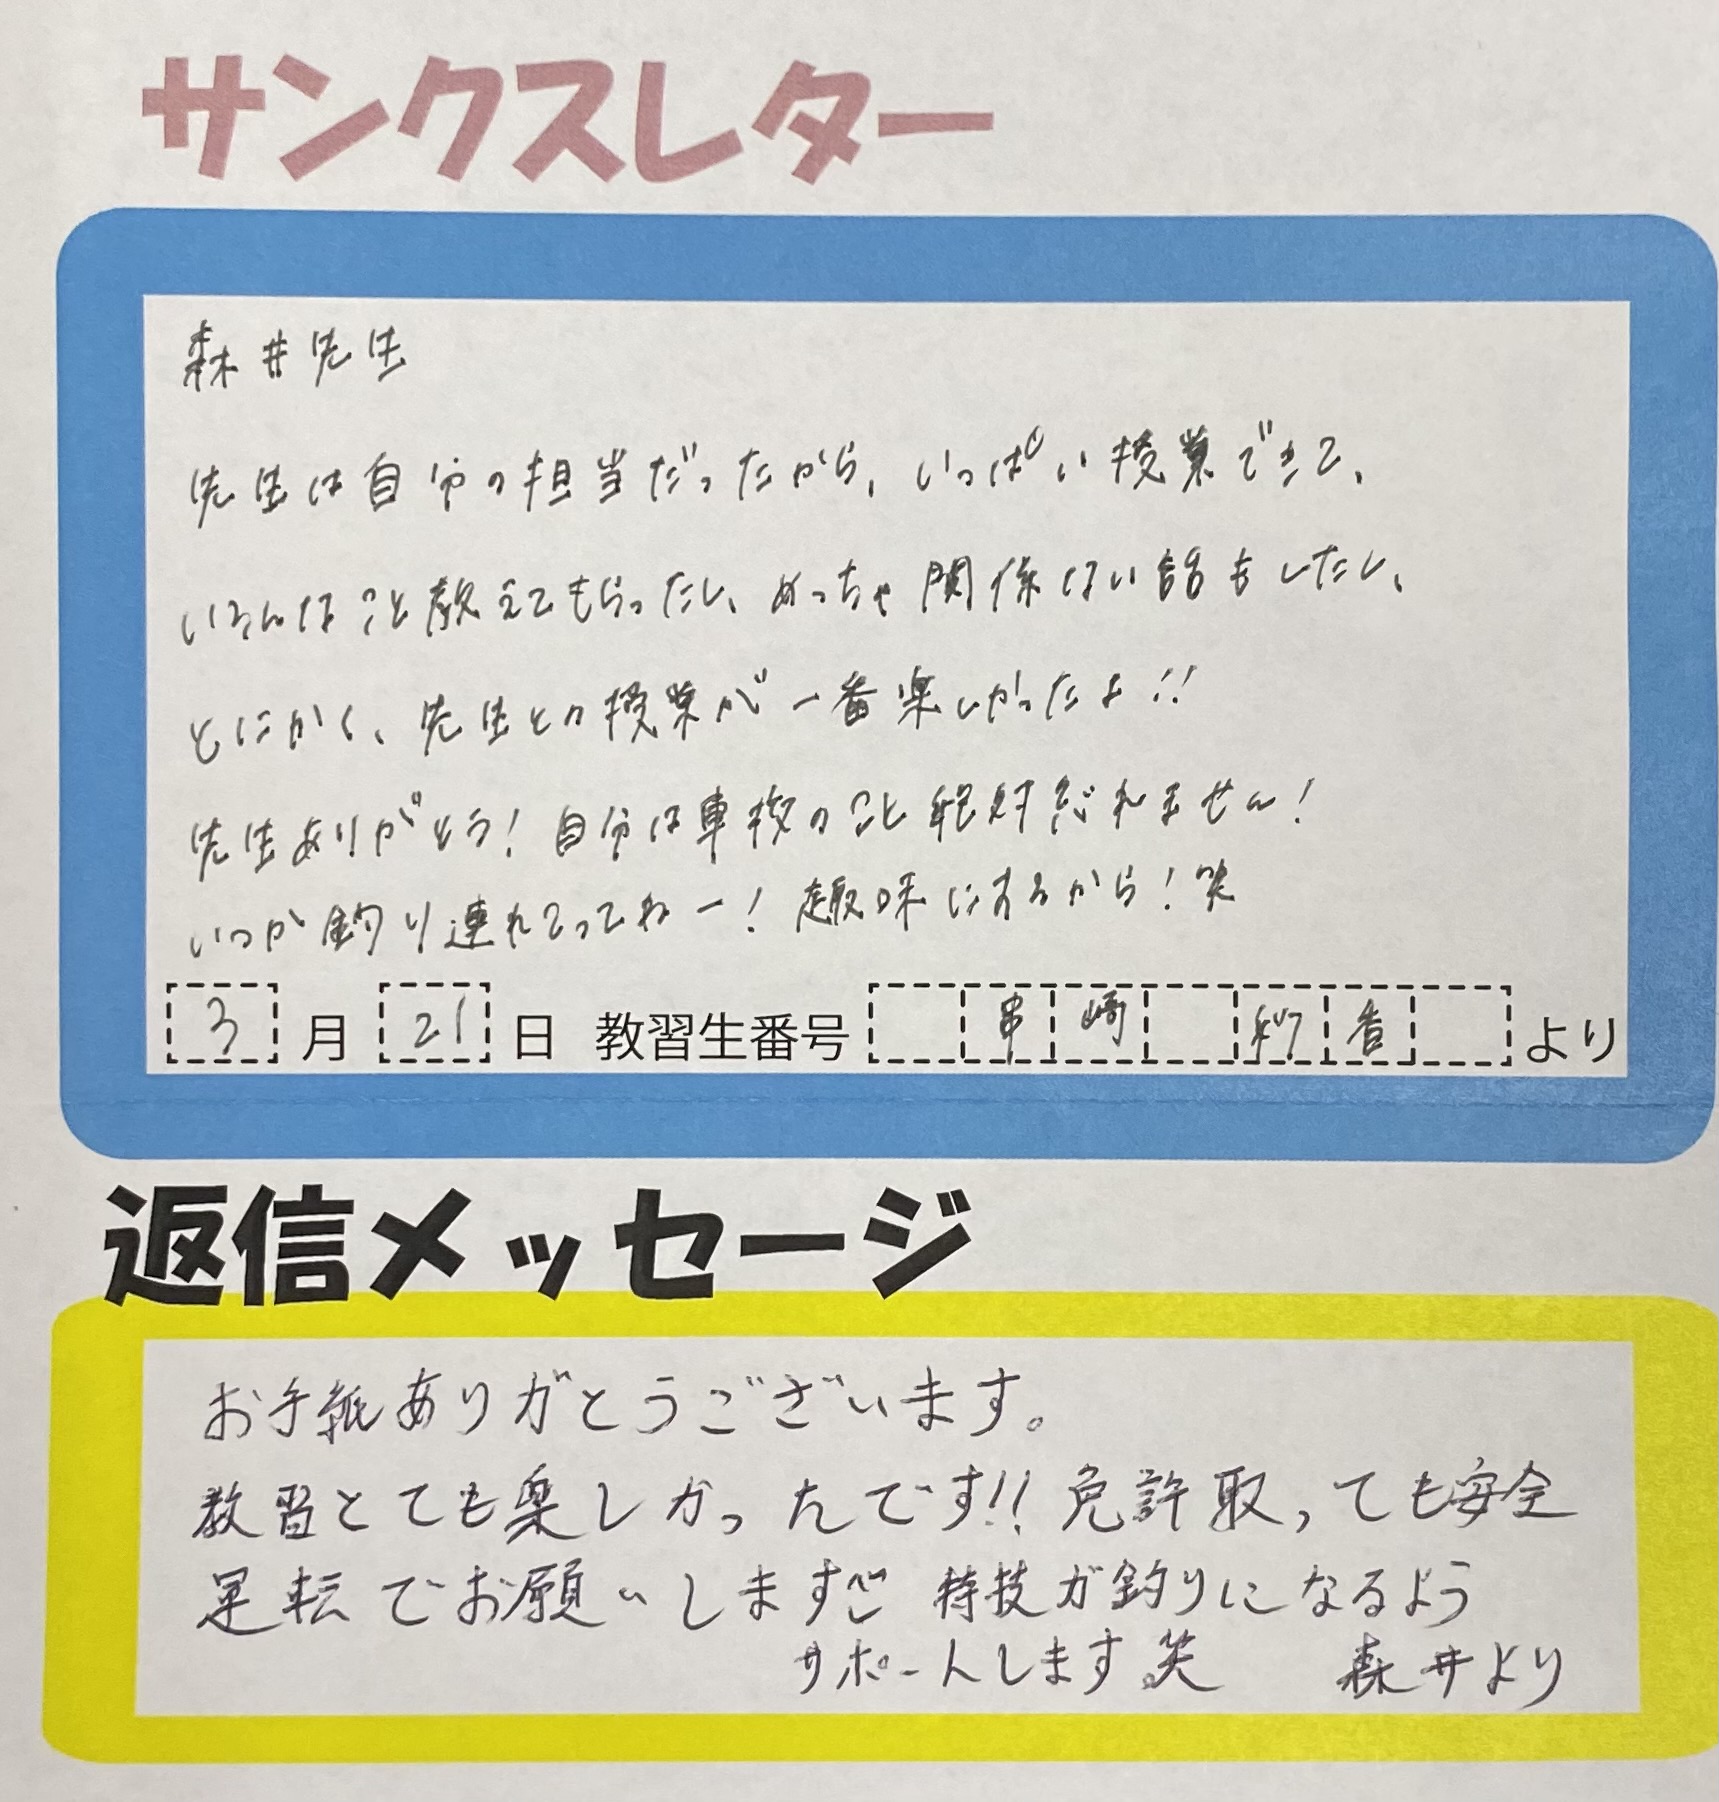 サンクスレター
森井先生
先生は自分の担当だったから、いっぱい授業できて、
いろんなこと教えてもらったし、めっちゃ関係ない話もしたし、
とにかく、先生との授業が一番楽しかったよ!!
先生ありがとう！自分は車校のこと絶対忘れません！
いつか釣り連れてってねー！趣味にするから！笑
3月21日 教習生番号 串崎 より
返信メッセージ
お手紙ありがとうございます。
教習とても楽しかったです!!免許取っても安全
運転でお願いします 特技が釣りになるよう
サポートします笑 森井より